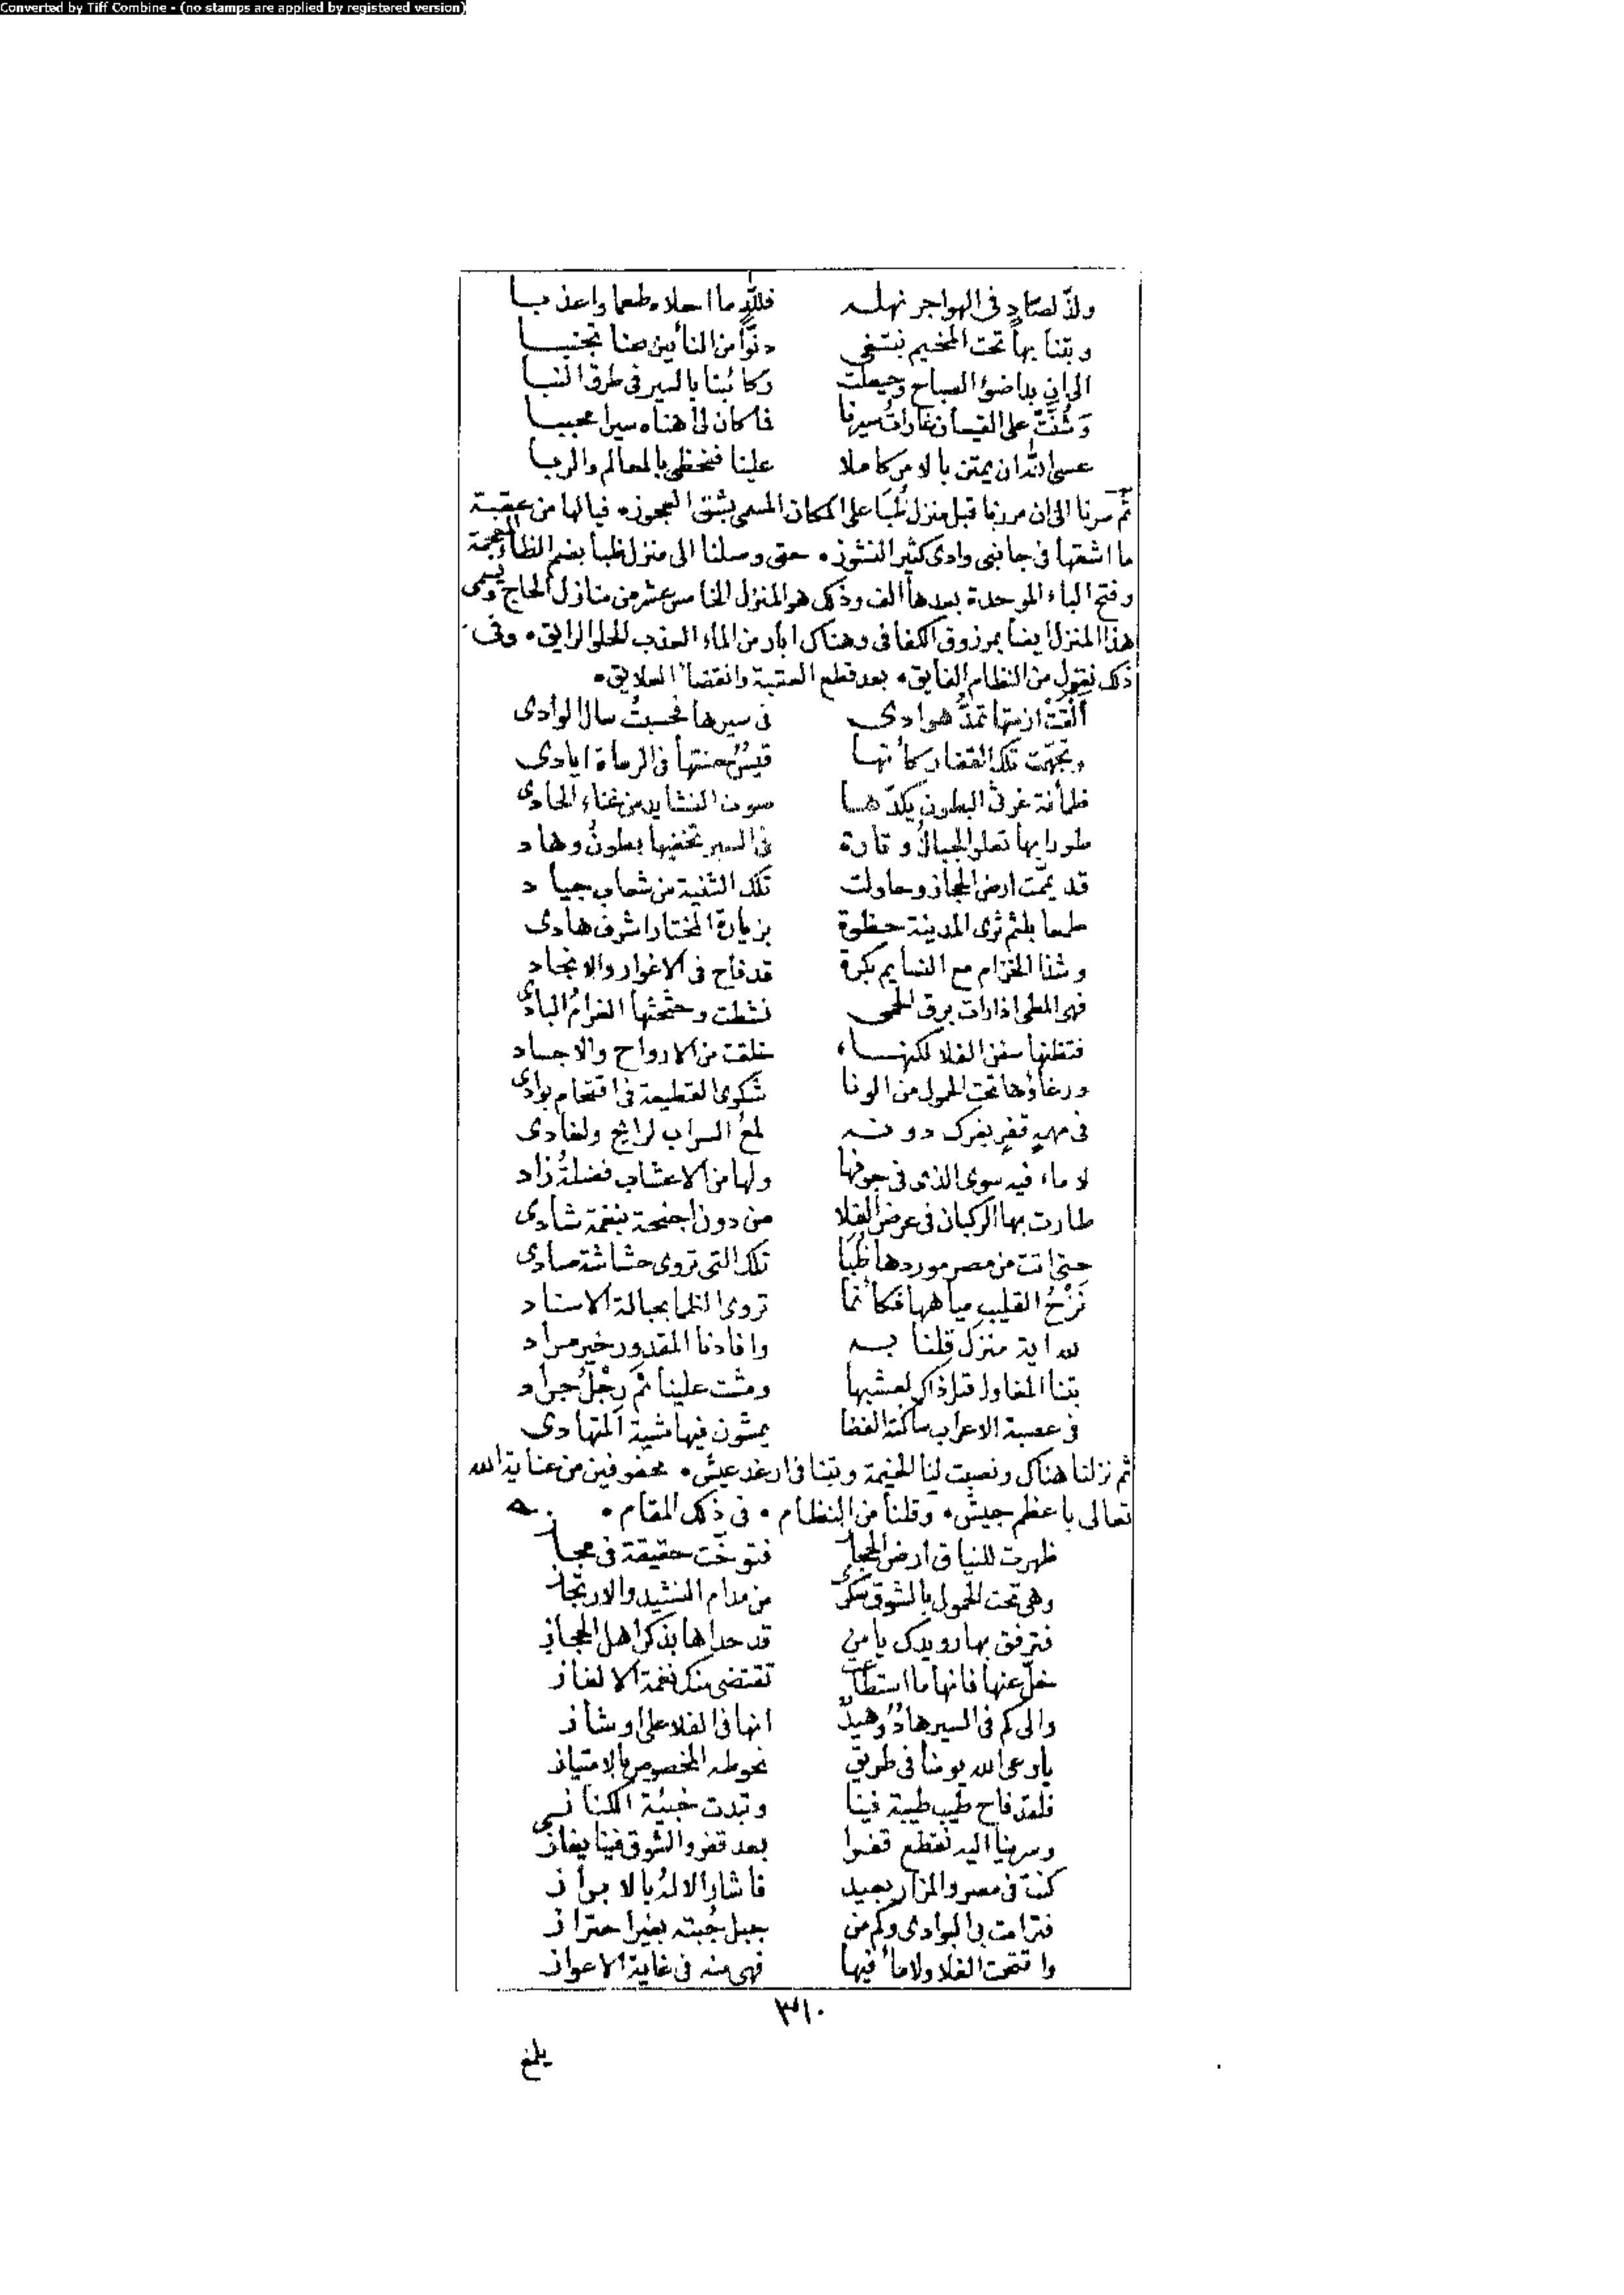 Converted by Tiff Combine - (no stamps are applied by registered version)
ولذّ لصادٍ فى الهواجر نهله فلله ما احلاه طعما واعذبا
وبتنا بها تحت المخيم نبتغى دنوّا من النائين عنا تجنبا
الى ان بدا ضوء الصباح وجيعلت ركائبنا بالسير فى طرق
وشنّت على القيسان غارات سيرنا فاكان لى اهناه سيرا محببا
عسى الله ان يمتن بالامر كاملا علينا فنحظى بالمعالم والربا
ثم سرنا الى ان مررنا قبل منزل ظبا على المكان المسمى بشق العجوز، فيالها من عقبة
ما اشقها فى جانبى وادى كثير النشوز، حتى وصلنا الى منزل ظبا بضم الظاء المعجمة
وفتح الباء الموحدة بعدها الف وذلك هو المنزل الخامس عشر من منازل الحاج ويسمى
هذا المنزل ايضا بمرزوق الكفافى وهناك ابار من الماء العذب الحلو الرايق، وفى
ذلك نقول من النظام الفايق، بعد قطع العقبة وانقضاء العلايق،
القت ازمتها تمدّ هوادى فى سيرها فحسبت سال الوادى
وتجهّمت تلك القفار كأنها قسىّ حنتها فى الرماة ايادى
ظمأنة غرثى البطون يكدّها صوت النشايد من غناء الحادى
طورا بها تعلو الجبال وتارة فى السير تخفيها بطون وهاد
قد يمّت ارض الحجاز وحاولت تلك الثنية من شعاب جياد
طمعا بلثم ثرى المدينة حظوة بزيارة المختار اشرف هادى
وشذا الخزام مع النسايم بكرة قد فاح فى الاغوار والانجاد
فهى المطى اذا رات برق الحمى نشطت وحثحثها الغرام البادى
فتظنها سفن الفلا لكنها، خلقت من الارواح والاجساد
ورغاؤها تحت الحمول من الونا شكوى القطيعة فى اقتحام بوادى
فى مهمهٍ قفرٍ يغرك دونه لمع السراب لرائح ولغادى
لا ماء فيه سوى الذى فى جوفها ولها من الاعشاب فضلة زاد
طارت بها الركبان فى عرض الفلا من دون اجنحة بنغمة شادى
حتى اتت من مصر موردها ظبا تلك التى تروى حشاشة صادى
نزح القليب مياهها فكأنما تروى الظما بجبالة الاستاد
لله اية منزل قلنا به وافادنا المقدور خير مراد
بتنا المغاول قبل ذاك لعشبها ومشت علينا ثم رجل جراد
فى عصبة الاعراب ساكنة الفضا يمشون فيها مشية المتهادى
ثم نزلنا هناك ونصبت لنا الخيمة وبتنا فى ارغد عيش، محفوفين من عناية الله
تعالى باعظم جيش، وقلنا من النظام، فى ذلك المقام،
ظهرت للنياق ارض الحجاز فتوخّت حقيقة فى مجاز
وهى تحت الحمول بالشوق سكرى من مدام النشيد والارتجاز
فترفق بها رويدك يا من قد حداها بذكر اهل الحجاز
خلّ عنها فانها ما استطاعت تقتضى منك نغمة الالغاز
والى كم فى السير هادٌ وهيدٌ انها فى الفلا على اوشاز
يا رعى الله يومنا فى طريق نحو طه المخصوص بالامتياز
فلقد فاح طيب طيبة فينا وتبدت خبيئة الكناز
وسرينا اليه نقطع قفرا بعد قفر والشوق فينا يغازى
كنت فى مصر والمزار بعيد فاشار الاله بالابراز
فترامت بى البوادى وكم من جبل جبته بغير احتراز
واقتحمت الفلا ولا ماء فيها فهى منه فى غاية الاعواز
٣١٠
يلمغ